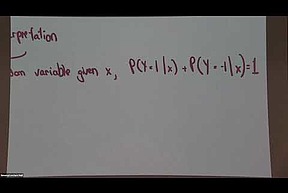 rpretation
dom variable given x, P(Y=1|x) + P(Y=-1|x)=1